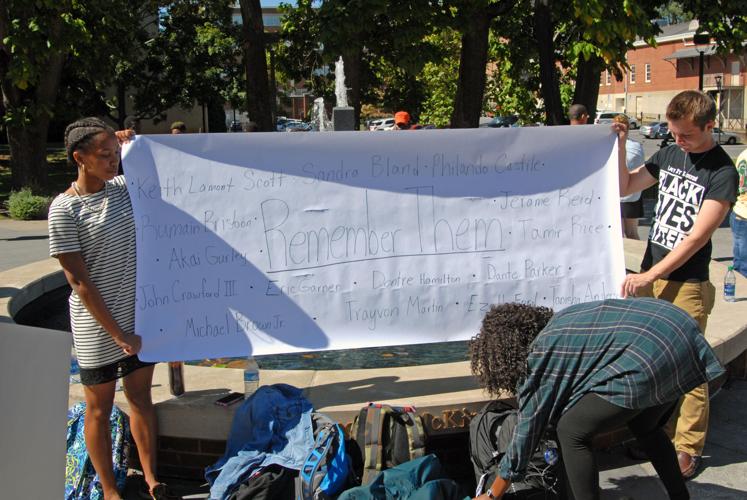 Keith Lamont Scott · Sandra Bland · Philando Castile ·
Rumain Brisbon · Remember Them · Jerame Reid ·
· Akai Gurley · Tamir Rice ·
John Crawford III · Eric Garner · Dontre Hamilton · Dante Parker ·
· Michael Brown Jr. · Trayvon Martin · Ezell Ford · Tanisha Anderson
BLACK
LIVES